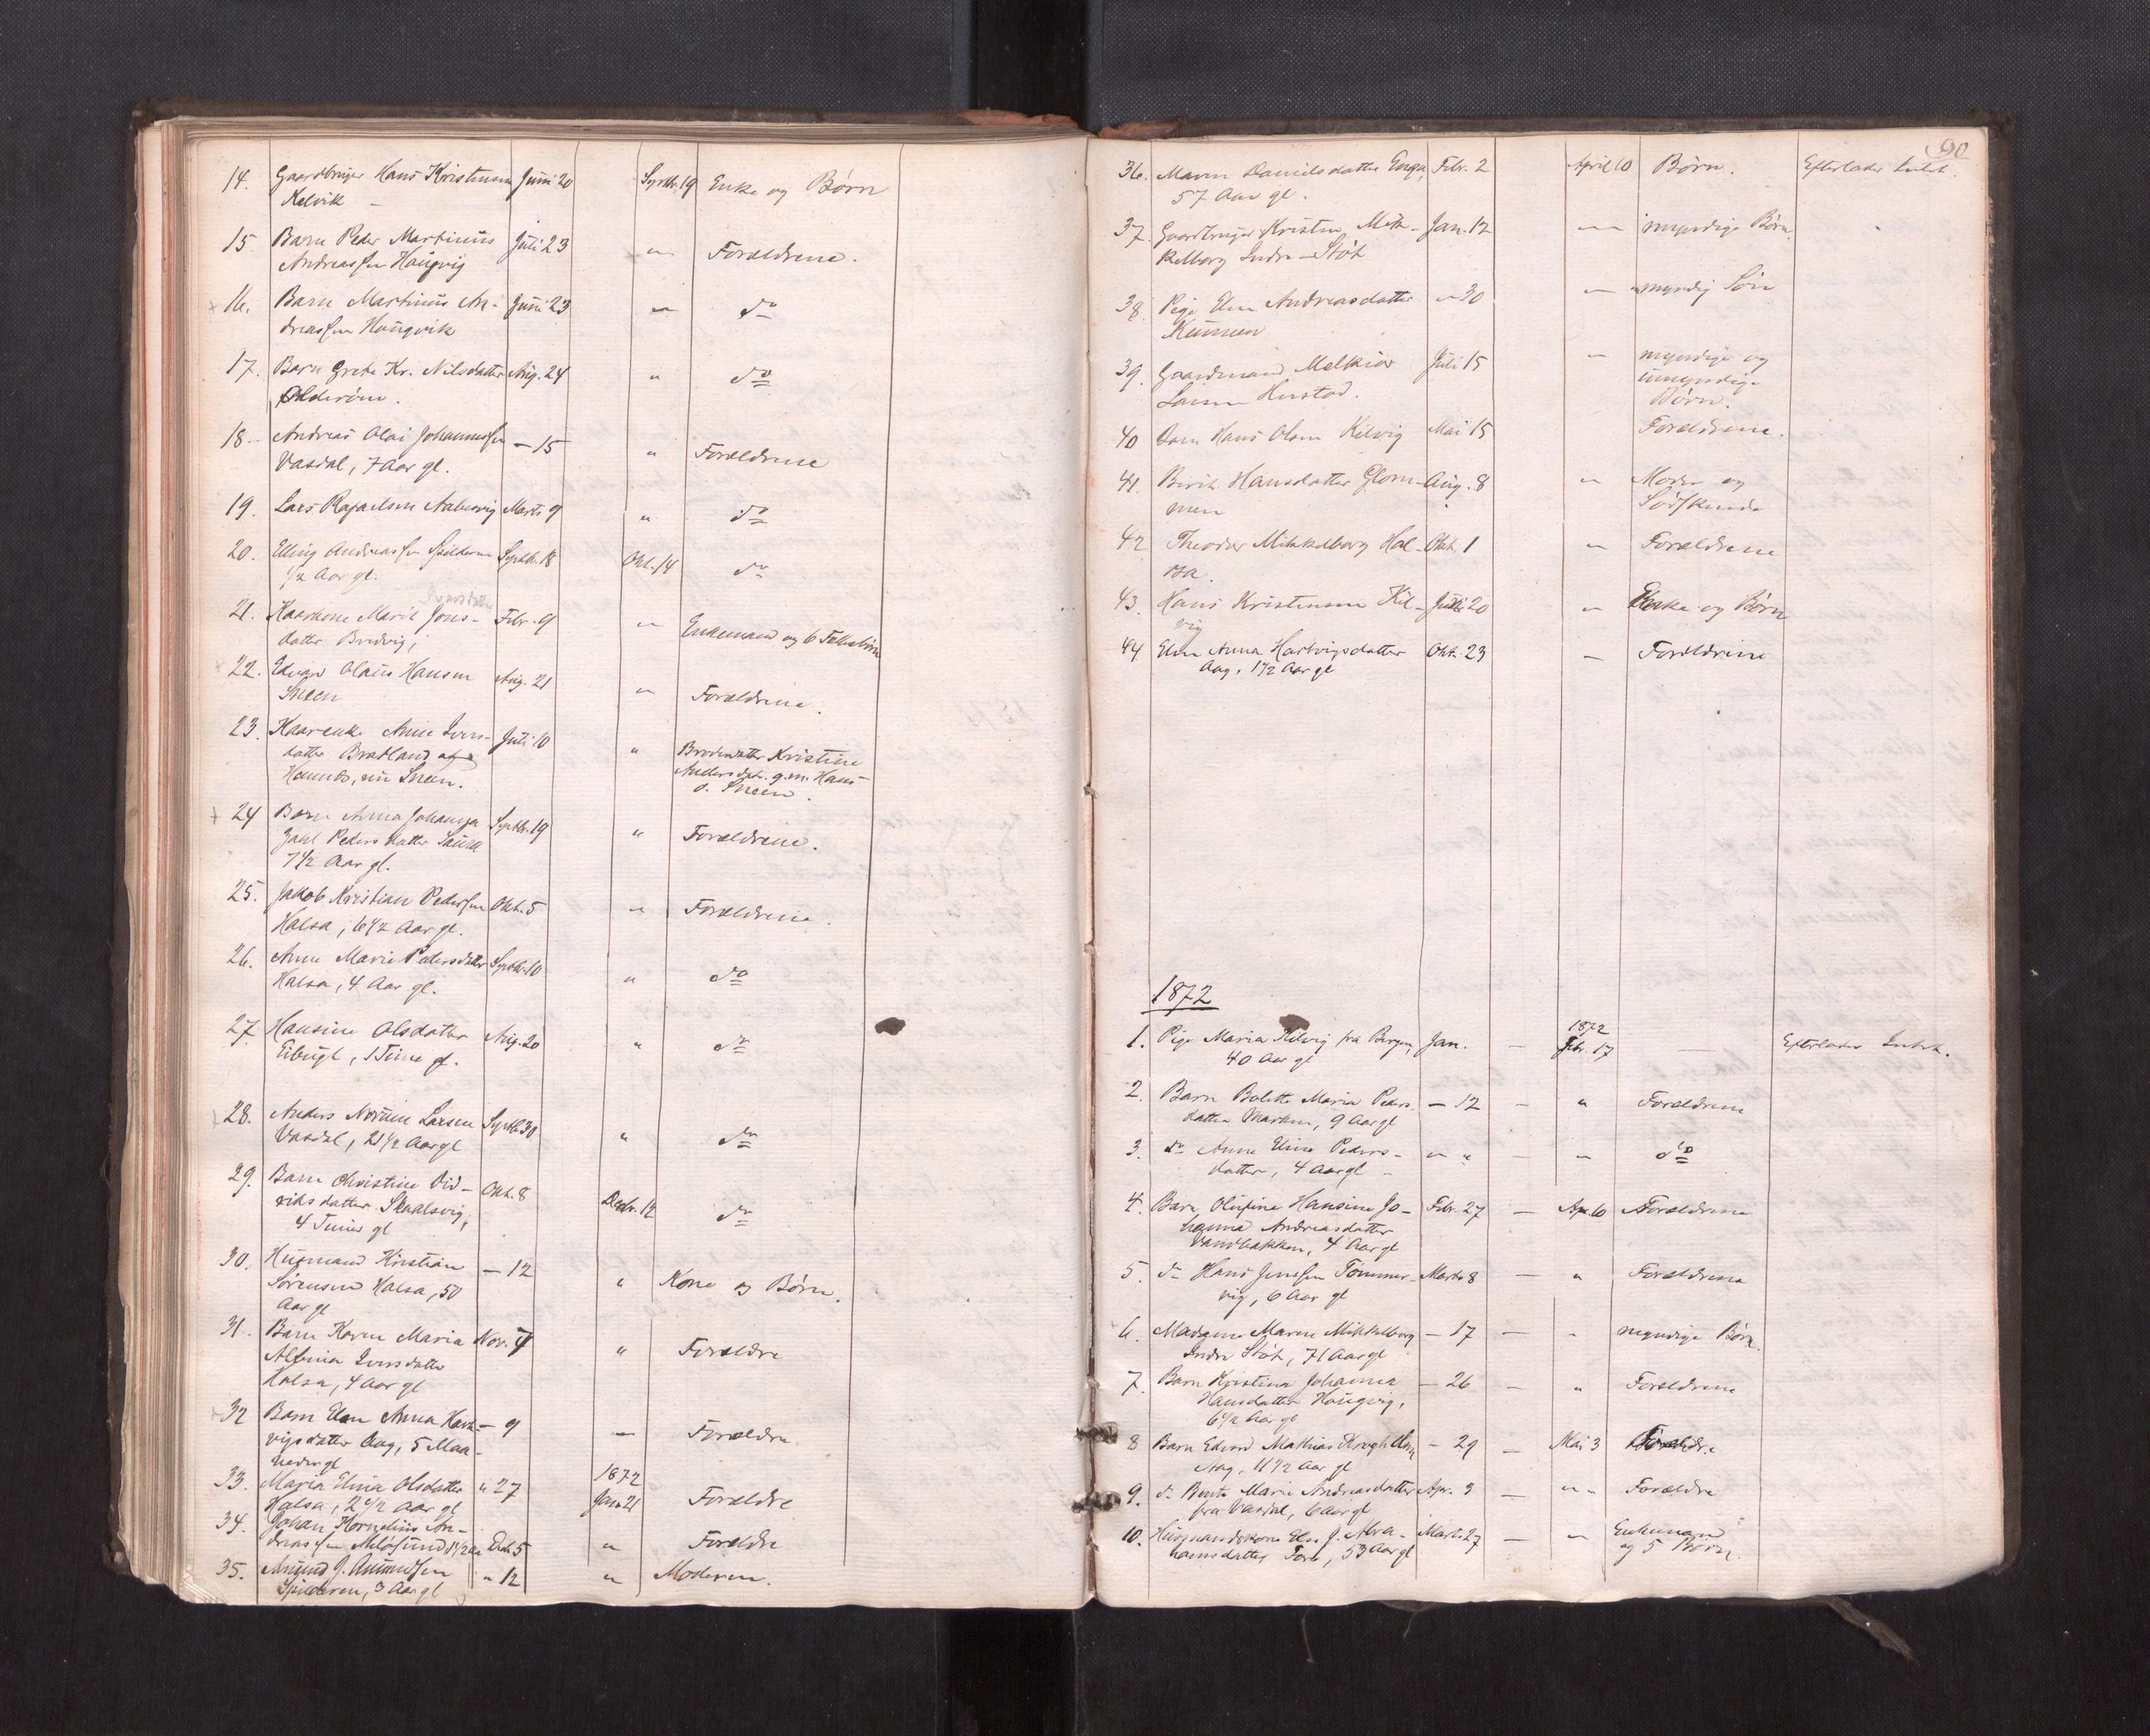 14. Gaardbruger Hans Kristensen Juni 20 Septbr. 19 Enke og Børn
Kelvik –
15. Barn Peder Martinus Juli 23 " Forældrene.
Andreassen Haugvig
16. Barn Martinus An- Juni 23 " do
dreassen Haugvik
17. Barn Grete Kr. Nilsdatter Aug. 24 " do
18. Andreas Olai Johannessen – 15 " Forældrene
Vasdal, 7 Aar gl.
19. Lars Rafaelsen Marts 9 " do
20. Elling Andreassen Spilderen Septbr. 18 Okt. 14 do
½ Aar gl.
21. Kaarkone Marit Jons- Febr. 9 " Enkemand og 6
datter Bredvig,
22. Edvard Olaus Hansen Aug. 21 " Forældrene.
Sneen
23. Kaarenke Anne Ivers- Juli 10 " Broderdatter Kristine
datter Bratland af Andersdtr. g. m. Hans
nu Sneen. O. Sneen.
24 Barn Anna Johanna Septbr. 19 " Forældrene.
Pedersdatter Saura
7½ Aar gl.
25. Jakob Kristian Pedersen Okt. 5 " Forældrene.
Halsa, 6½ Aar gl.
26. Anne Marie Pedersdatter Septbr. 10 " do
Halsa, 4 Aar gl.
27. Hansine Olsdatter Aug. 20 " do
1 Time gl.
28. Anders Larsen Septbr. 30 " do
Vasdal, 2½ Aar gl
29. Barn Christine Did- Okt. 8 Decbr. 12 do
riksdatter Skaalsvig,
4 Timer gl
30. Husmand Kristian – 12 " Kone og Børn.
Sørensen Halsa, 50
Aar gl
31. Barn Karen Maria Nov. 7 " Forældre
Albina Iversdatter
Halsa, 4 Aar gl
32 Barn Elen Anna Hart- – 9 – Forældre
vigsdatter Aag, 5 Maa-
neder gl
33. Maria Elina Olsdatter " 27 1872 Jan. 21 Forældre
Halsa, 2½ Aar gl
34. Johan Kornelius An- Dec. 5 " Forældre
dreassen
35. Amund J. Amundsen " 12 " Moderen.
Spilderen, 3 Aar gl
90
36. Maren Danielsdatter Enga, Febr. 2 April 10 Børn. Efterlader Intet.
57 Aar gl.
37. Gaardbruger Kristen Mik- Jan. 12 " myndige Børn.
kelborg Indre-Støt
38. Pige Elen Andreasdatter " 30 " myndig Søn
Kunnen
39. Gaardmand Melkior Juli 15 " myndige og
Larsen Hustad. umyndige
Børn.
40 Barn Hans Olsen Kilvig Mai 15 Forældrene.
41. Berit Hansdatter Glom- Aug. 8 " Moder og
men Sødskende
42 Theodor Mikkelborg Hal- Okt. 1 " Forældrene
sa.
43. Hans Kristensen Kil- Juli 20 " Enke og Børn
vig
44 Elen Anna Hartvigsdatter Okt. 23 – Forældrene
Aag, 1½ Aar gl
1872
1. Pige Maria Kilvig fra Bergen, Jan. – 1872 Febr. 17 – Efterlader Intet.
40 Aar gl
2. Barn Bolette Maria Peders- – 12 – " Forældrene
datter Marken, 9 Aar gl
3. do Anne Elina Peders- " " – " do
datter, 4 Aar gl –
4. Barn Olufine Hansine Jo- Febr. 27 – Ap. 6 Forældrene
hanna Andreasdatter
Sandbakken, 4 Aar gl
5. do Hans Jenssen Tømmer- Marts 8 – " Forældrene
vig, 6 Aar gl
6. Madame Maren Mikkelborg – 17 – " myndige Børn.
Indre Støt, 71 Aar gl
7. Barn Kristina Johanna – 26 – " Forældrene
Hansdatter Haugvig,
6½ Aar gl
8 Barn Edvard Mathias – 29 – Mai 3 Forældre
Aag, 11½ Aar gl
9. do Bente Marie Andreasdatter Apr. 3 – " " Forældre
fra Vasdal, 6 Aar gl
10. Husmandskone Elen J. Abra- Marts 27 – " Enkemand
hamsdatter Forø, 53 Aar gl og 5 Børn.